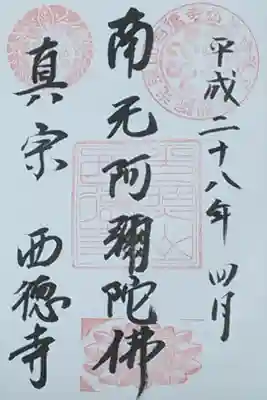 平成二十八年 四月
南无阿彌陀佛
真宗 西德寺